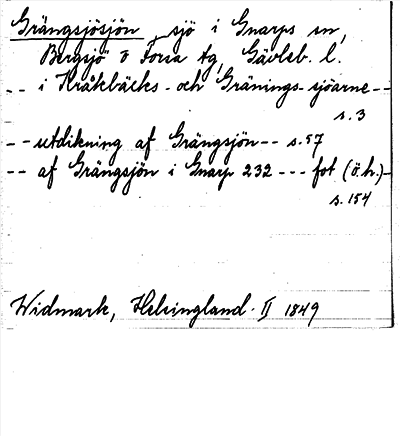 Grängsjösjön, sjö i Gnarps sn,
Bergsjö o Forsa tg, Gävleb. l.
-- i Kråkbäcks- och Gränings-sjöarne --
s. 3
-- utdikning af Grängsjön -- s. 57
-- af Grängsjön i Gnarp 232 --- fot (ö.h.) -
s. 154
Widmark, Helsingland. II 1849